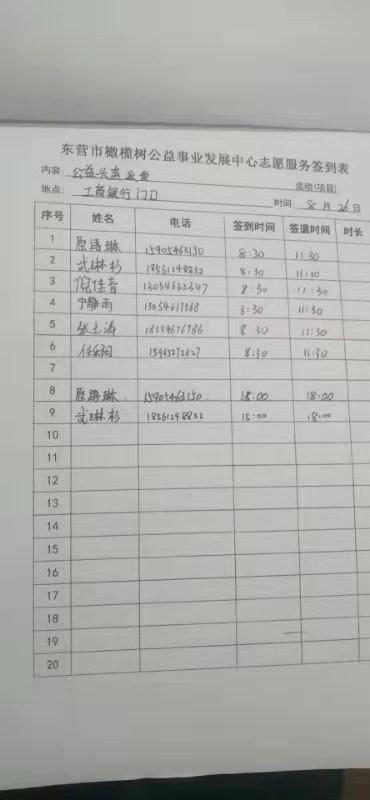 东营市橄榄树公益事业发展中心志愿服务签到表
内容: 公益头盔 活动(项目)
地点: 工商银行门口 时间 8 月 26 日
序号 姓名 电话 签到时间 签退时间 时长
1 琳 15905463150 8:30 11:30
2 武琳杉 18561248832 8:30 11:30
3 倪佳音 8:30 11:30
4 宁静雨 13054617568 8:30 11:30
5 张 18554676786 8:30 11:30
6 8:30 11:30
7
8 琳 15905463150 18:00
9 武琳杉 18561248832 15:00 18:00
10
11
12
13
14
15
16
17
18
19
20